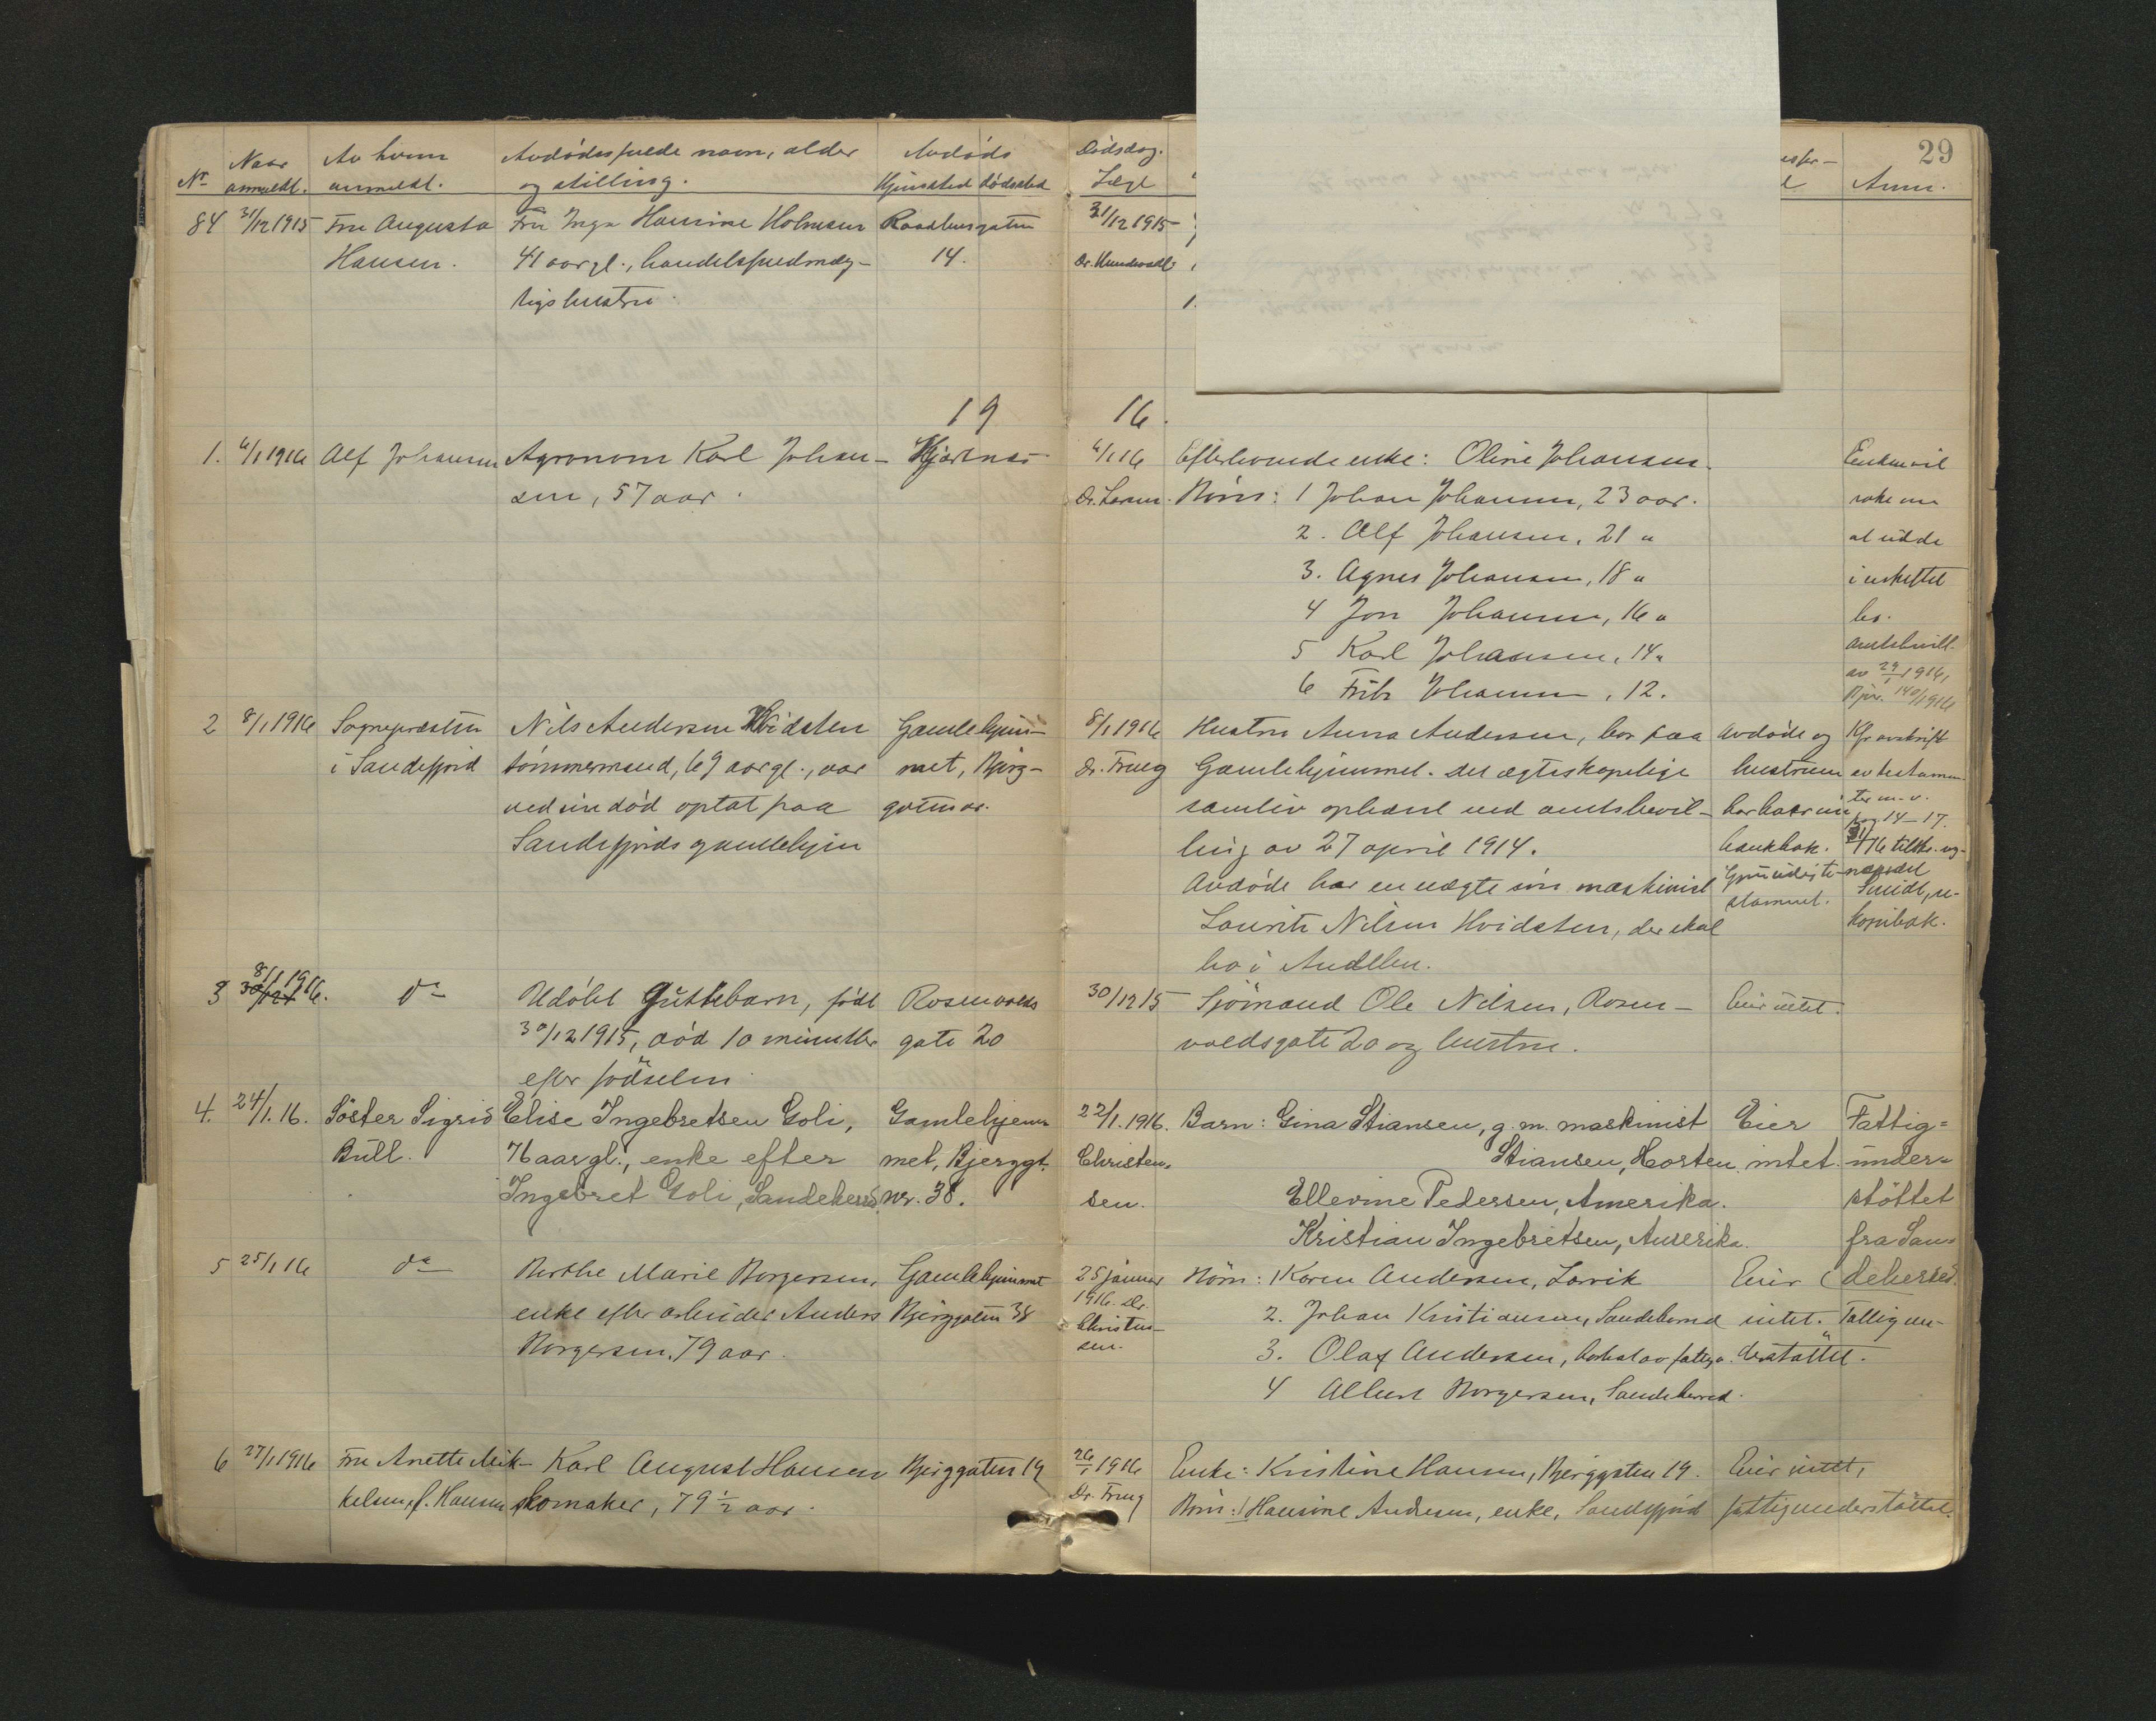 29
Nr Naar anmeldt. Av hvem anmeldt. Avdødes fulde navn, alder og stilling. Avdøds Hjemsted Dødssted Dødsdag. Læge Anm.
84 31/12 1915 Fru Augusta Fru Inga Hansine Holmsen Raadhusgaten 31/12 1915
Hansen. 41 aar gl., handelsfuldmæg- 14.
tigs hustru.
19 16.
1. 6/1 1916 Alf Johansen Agronom Karl Johan- Hjertnes 6/1 16 Efterlevende enke: Oline Johansen. Enken vil
sen, 57 aar. Børn: 1 Johan Johansen, 23 aar. søke om
2. Alf Johansen, 21 "
at sidde
3. Agnes Johansen, 18 "
i uskiftet
4 Jon Johansen, 16 "
bo.
5 Karl Johansen, 14 "
amtsbevill.
6 Johansen, 12.
av 29/1 1916,
140/1916
2 8/1 1916 Sogneprœsten Nils Andersen Hvidsten Gamlehjem- 8/1 1916 Hustru Anna Andersen, bor paa Avdøde og Kfr avskrift
i Sandefjord tømmermand, 69 aar gl., var met, Bjerg- Gamlehjemmet. Det egteskapelige hustruen av testamen-
ved sin død optat paa gaten samliv ophævet ved amtsbevil- har hver sin ter m.v.
Sandefjords gamlehjem ling av 27 april 1914. bankbok. pag 14-17.
Avdøde har en uægte søn maskinist
Laurits Nilsen Hvidsten, der skal kopibok.
bo i
3 8/1 1916. do Udøbt Guttebarn, født Rosenvolds 30/12 15 Sjømand Ole Nilsen, Rosen- Eier intet.
30/12 1915, død 10 minutter gate 20 voldsgate 20 og hustru.
efter fødselen.
4. 24/1. 16. Söster Sigrid Elise Ingebretsen Goli, Gamlehjem- 22/1. 1916. Barn: Gina Stiansen, g. m. maskinist Eier Fattig=
Bull. 76 aar gl., enke efter met, Bjerggt. Christen= Stiansen, Horten. intet. under=
Ingebret Goli, Sandeherred. nr. 38. sen. Ellevine Pedersen, Amerika. støttet
Kristian Ingebretsen, Amerika. fra San=
deherred.
5 25/1 16 do Berthe Marie Borgersen, Gamlehjemmet 25 januar Børn: 1 Karen Andersen, Larvik Eier
enke efter arbeider Anders Bjerggaten 38 1916. Dr. 2. Johan Kristiansen, Sandeherred intet. Fattigun-
Borgersen, 79 aar. Christen- 3. Olaf Andersen, derstøttet.
sen. 4 Albert Borgersen, Sandeherred.
6 27/1 1916 Fru Anette Mik- Karl August Hansen Bjerggaten 19 26/1 1916 Enke: Kristine Hansen, Bjerggaten 19. Eier intet,
kelsen, f. Hansen skomaker, 79 1/2 aar. Børn: 1 Hansine Andersen, enke, Sandefjord fattigunderstøttet.